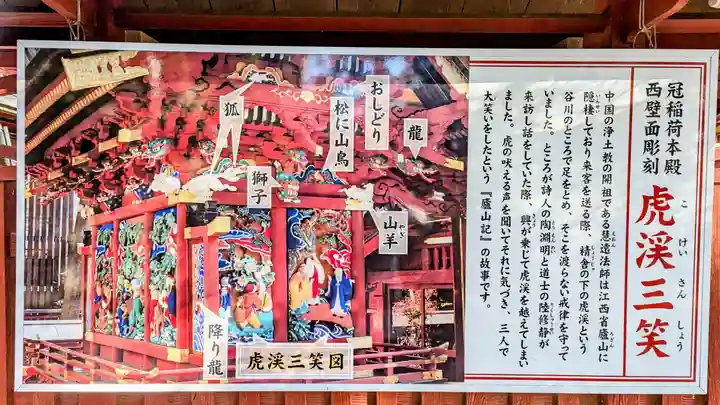 冠稲荷本殿
西壁面彫刻
虎渓三笑
こけいさんしょう
中国の浄土教の開祖である慧遠法師は江西省廬山に
隠棲しており来客を送る際、精舎の下の虎渓という
谷川のところで足をとめ、そこを渡らない戒律を守って
いました。ところが詩人の陶淵明と道士の陸修静が
来訪し話をしていた際、興が乗じて虎渓を越えてしまい
ました。虎の吠える声を聞いてそれに気づき、三人で
大笑いをしたという『廬山記』の故事です。
龍
おしどり
松に山鳥
狐
獅子
山羊
やぎ
降り龍
虎渓三笑図